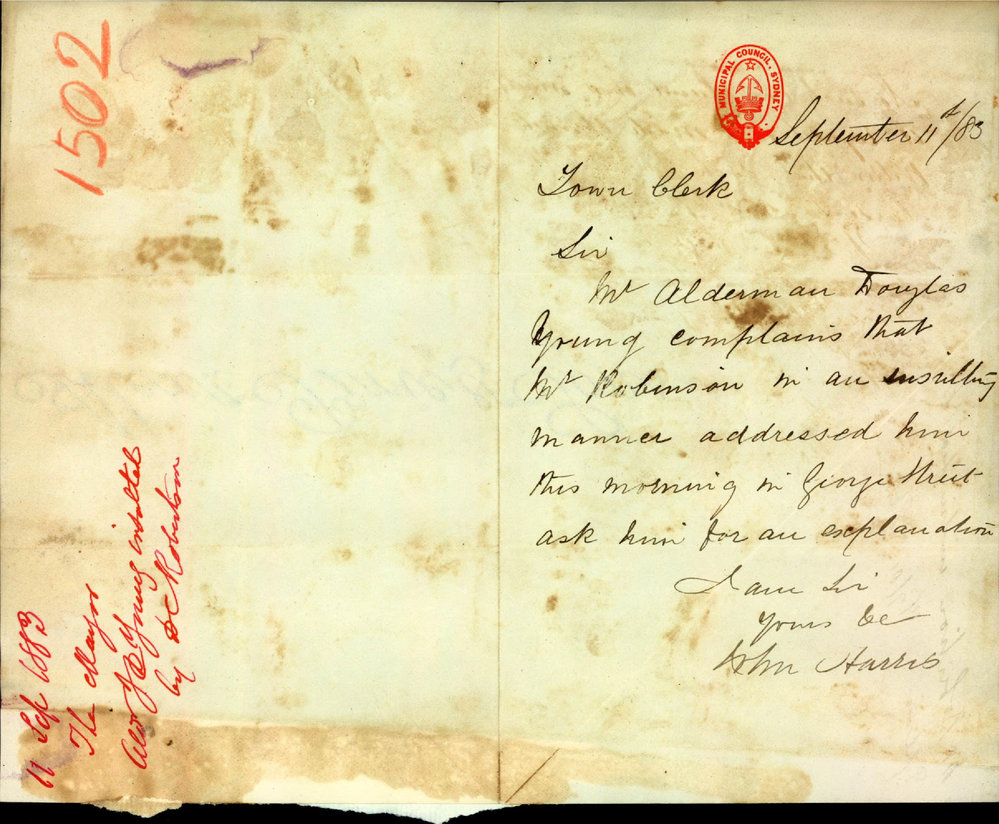 1502
11 Sep 1883
The Mayor
Young insulted
by D C Robertson
MUNICIPAL COUNCIL, SYDNEY
September 11th/83
Town Clerk
Sir
Mr Alderman Douglas
Young complains that
Mr Robinson in an insulting
manner addressed him
this morning in George Street
ask him for an explanation
I am Sir
Yours &c
John Harris